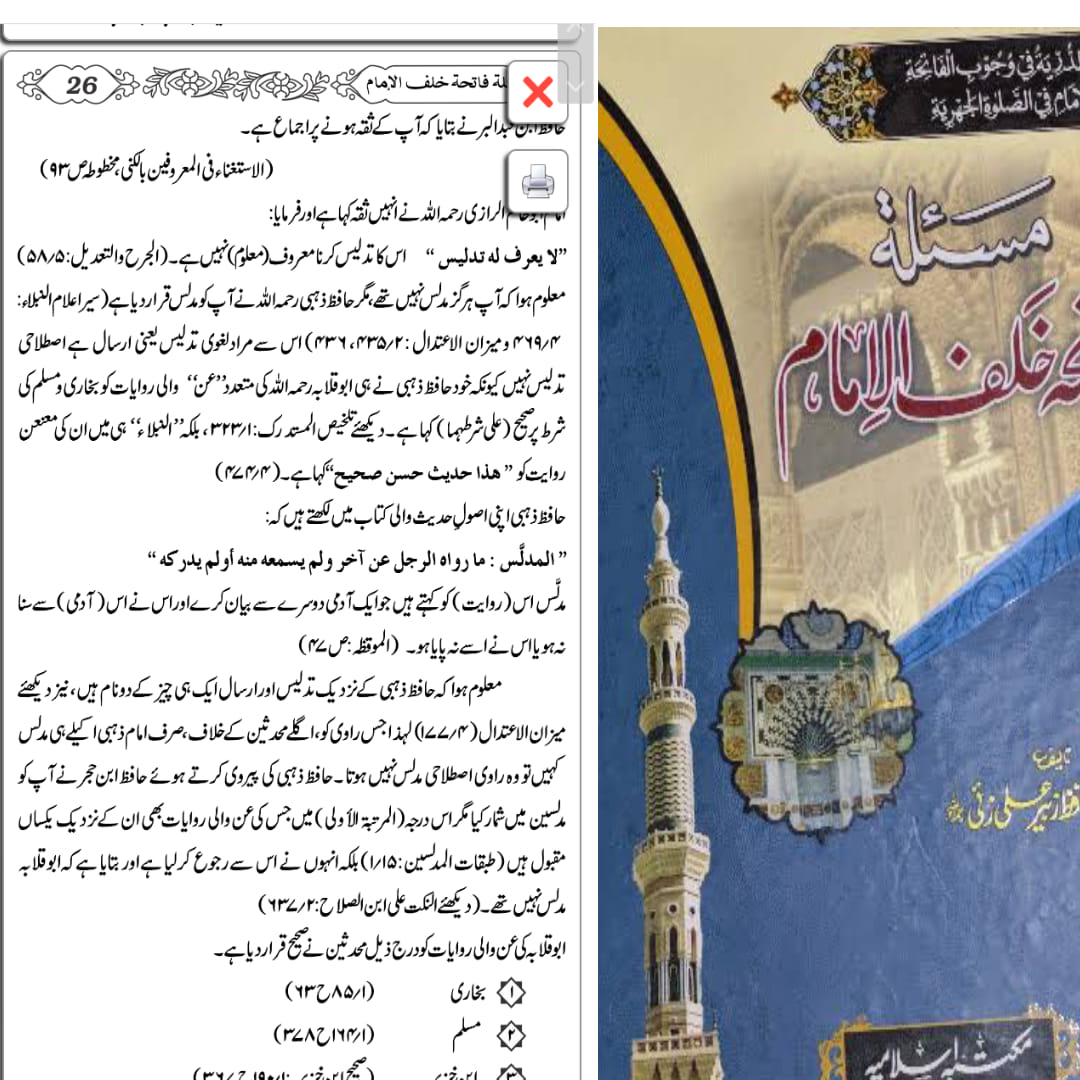 26
مسئلة فاتحة خلف الإمام
حافظ ابن عبدالبر نے بتایا کہ آپ کے ثقہ ہونے پر اجماع ہے۔
(الاستغناء فی المعروفین بالکنی، مخطوط ص ۹۳)
امام ابو حاتم الرازی رحمہ اللہ نے انہیں ثقہ کہا ہے اور فرمایا:
”لا یعرف له تدلیس“ اس کا تدلیس کرنا معروف (معلوم) نہیں ہے۔ (الجرح والتعدیل: ۵؍۵۸)
معلوم ہوا کہ آپ ہرگز مدلس نہیں تھے، مگر حافظ ذہبی رحمہ اللہ نے آپ کو مدلس قرار دیا ہے (سیر اعلام النبلاء:
۴؍۴۶۹ و میزان الاعتدال: ۲؍۴۳۵، ۴۳۶) اس سے مراد لغوی تدلیس یعنی ارسال ہے اصطلاحی
تدلیس نہیں کیونکہ خود حافظ ذہبی نے ہی ابوقلابہ رحمہ اللہ کی متعدد ”عن“ والی روایات کو بخاری و مسلم کی
شرط پر صحیح (علی شرطہما) کہا ہے۔ دیکھئے تلخیص المستدرک: ۱؍۳۲۳، بلکہ ”النبلاء“ ہی میں ان کی معنعن
روایت کو ”هذا حدیث حسن صحیح“ کہا ہے۔ (۴؍۴۷۴)
حافظ ذہبی اپنی اصولِ حدیث والی کتاب میں لکھتے ہیں کہ:
”المدلَّس : ما رواه الرجل عن آخر ولم یسمعه منه أولم یدرکه“
مدلَّس اس (روایت) کو کہتے ہیں جو ایک آدمی دوسرے سے بیان کرے اور اس نے اس (آدمی) سے سنا
نہ ہو یا اس نے اسے نہ پایا ہو۔ (الموقظہ: ص ۴۷)
معلوم ہوا کہ حافظ ذہبی کے نزدیک تدلیس اور ارسال ایک ہی چیز کے دو نام ہیں، نیز دیکھئے
میزان الاعتدال (۴؍۱۷۷) لہذا جس راوی کو، اگلے محدثین کے خلاف، صرف امام ذہبی اکیلے ہی مدلس
کہیں تو وہ راوی اصطلاحی مدلس نہیں ہوتا۔ حافظ ذہبی کی پیروی کرتے ہوئے حافظ ابن حجر نے آپ کو
مدلسین میں شمار کیا مگر اس درجہ (المرتبۃ الأولی) میں جس کی عن والی روایات بھی ان کے نزدیک یکساں
مقبول ہیں (طبقات المدلسین: ۱؍۱۵) بلکہ انہوں نے اس سے رجوع کر لیا ہے اور بتایا ہے کہ ابوقلابہ
مدلس نہیں تھے۔ (دیکھئے النکت علی ابن الصلاح: ۲؍۶۳۷)
ابوقلابہ کی عن والی روایات کو درج ذیل محدثین نے صحیح قرار دیا ہے۔
۱ بخاری (۱؍۸۵ ح ۶۳)
۲ مسلم (۱؍۱۶۴ ح ۳۷۸)
۳ ابن خزیمہ
الدُّرِّیَةُ فِیْ وُجُوْبِ الْفَاتِحَةِ
الْاِمَامِ فِی الصَّلٰوةِ الْجَهْرِیَّةِ
مسئلة
خَلفَ الاِمَام
تالیف
حافظ زبیر علی زئی
مکتبہ اسلامیہ